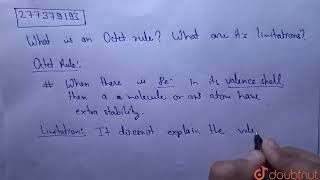 277379193
What is an Octet rule? What are it's limitations?
Octet Rule:-
# When there is 8e- in its valence shell,
then a molecule or an atom have
extra stability.
Limitation:- It doesnot explain the vale
doubtnut